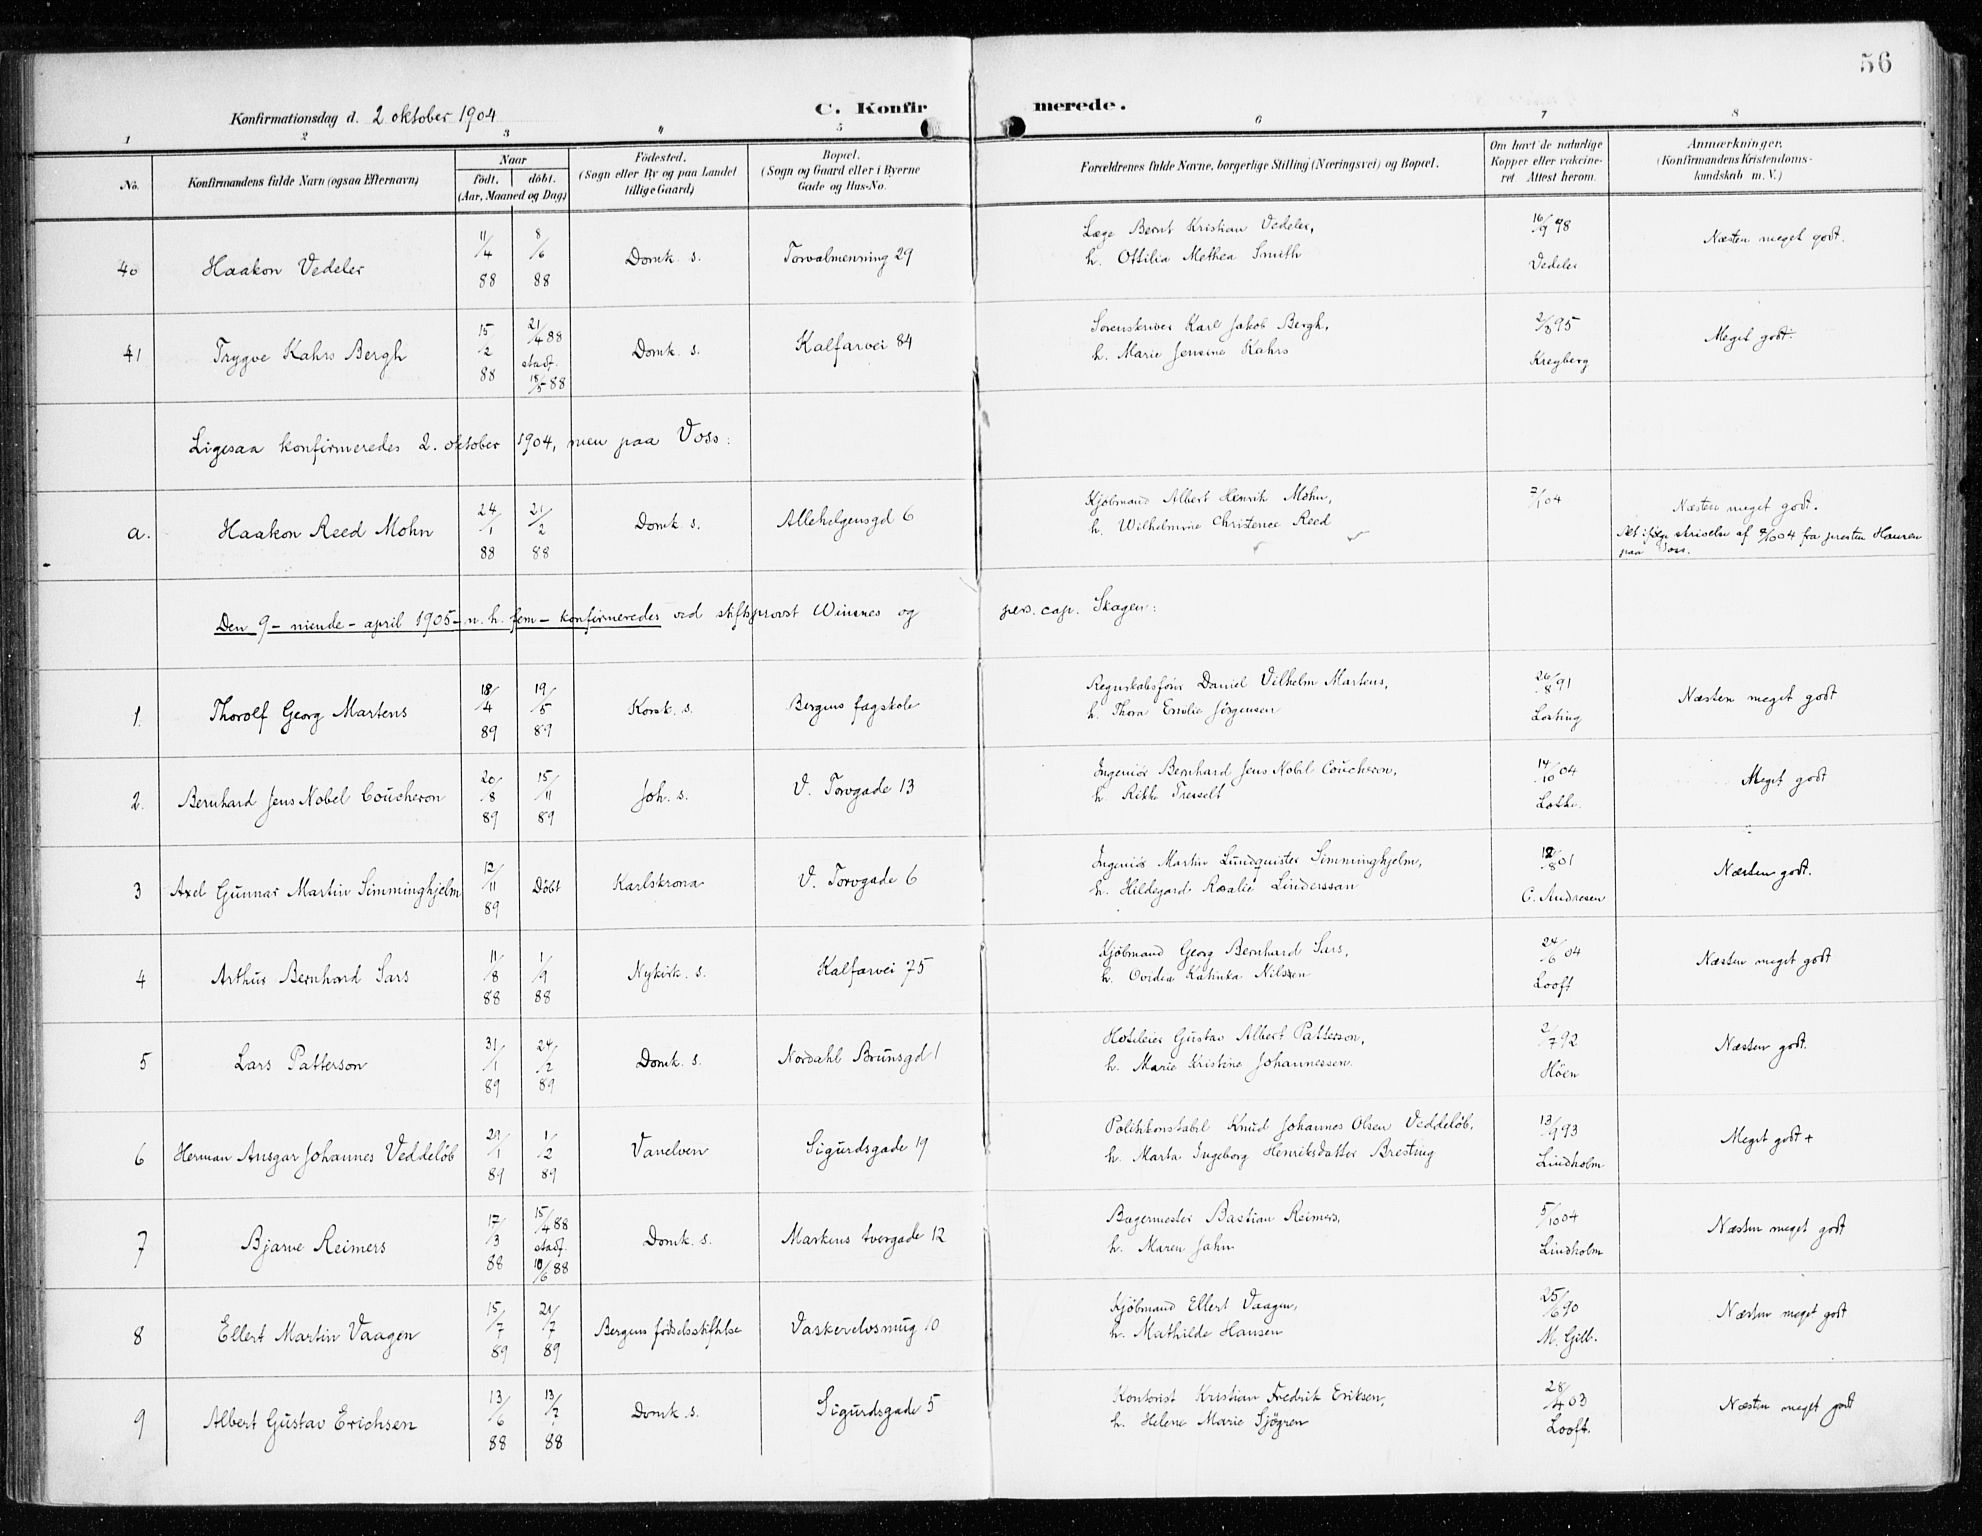 56
Konfirmationsdag d. 2 oktober 1904
C. Konfirmerede.
1 2 3 4 5 6 7 8
No. Konfirmandens fulde Navn (ogsaa Efternavn) Naar født. døbt. (Aar, Maaned og Dag) Fødested. (Sogn eller By og paa Landet tillige Gaard) Bopæl. (Sogn og Gaard eller i Byerne Gade og Hus-No. Forældrenes fulde Navne, borgerlige Stilling (Næringsvei) og Bopæl. Om havt de naturlige Kopper eller vakcineret Attest herom. Anmærkninger. (Konfirmandens Kristendomskundskab m. V.)
40 Haakon Vedeler 11/4 88 8/6 88 Domk. s. Torvalmenning 29 Læge Bernt Kristian Vedeler, h. Ottilia Methea Smith 16/9 98 Vedeler Næsten meget godt.
41 Trygve Kahrs Bergh 15/2 88 21/4 88 stadf. 18/5 88 Domk. s. Kalfarvei 84 Sorenskriver Karl Jakob Bergh, h. Marie Jensine Kahrs 2/8 95 Kreyberg Meget godt.
Ligesaa konfirmeredes 2. oktober 1904, men paa Voss:
a. Haakon Reed Mohn 24/1 88 21/2 88 Domk s. Allehelgensgd 6 Kjöbmand Albert Henrik Mohn, h. Wilhelmine Christence Reed 7/1 04 Næsten meget godt.
Alt ifølge skrivelse af 9/10 04 fra presten Hansen paa Voss.
Den 9 – niende – april 1905 – n. h. fem – konfirmeredes ved stiftsprovst Winsnes og pers. cap. Skagen:
1. Thorolf Georg Martens 18/4 89 19/5 89 Korsk. s. Bergens fagskole Regnskabsförer Daniel Vilhelm Martens, h. Thora Emilie Jörgensen 26/8 91 Losting Næsten meget godt
2. Bernhard Jens Nobel Coucheron 20/8 89 15/11 89 Joh. s. V. Torvgade 13 Ingeniör Bernhard Jens Nobel Coucheron, h. Rikke Tresselt 14/10 04 Lothe. Meget godt
3 Axel Gunnar Martin Simminghjelm 12/11 89 Döbt Karlskrona V. Torvgade 6 Ingeniör Martin Lundquister Simminghjelm, h. Hildegard Rosalie Linderssan 12/8 01 C. Andresen Næsten godt.
4 Arthur Bernhard Sars 11/8 88 1/9 88 Nykirk. s. Kalfarvei 75 Kjöbmand Georg Bernhard Sars, h. Ovidia Katinka Nilssen 24/6 04 Looft Næsten meget godt
5 Lars Patterson 31/1 89 24/2 89 Domk. s. Nordahl Brunsgd 1 Hoteleier Gustav Albert Patterson, h. Marie Kristine Johannessen. 2/7 92 Höen Næsten godt.
6 Herman Ansgar Johannes Veddelöb 29/1 89 1/2 89 Vanelven Sigurdsgade 19 Politikonstabil Knud Johannes Olsen Veddelöb, h. Marta Ingeborg Henriksdatter Bresting 13/9 93 Lindholm Meget godt +
7 Bjarne Reimers 17/3 88 15/4 88 stadf. 10/6 88 Domk. s. Markens tvergade 12 Bagermester Bastian Reimers, h. Maren Jahn 5/10 04 Lindholm Næsten meget godt
8 Ellert Martin Vaagen 15/7 89 21/7 89 Bergens födselsstiftelse Vaskerelvsmug 10 Kjöbmand Ellert Vaagen, h. Mathilde Hansen 25/6 90 M. Gjell. Næsten meget godt
9 Albert Gustav Erichsen 13/6 88 13/7 88 Domk. s. Sigurdsgade 5 Kontorist Kristian Fredrik Eriksen, h. Helene Marie Sjögren 28/4 03 Looft. Næsten meget godt